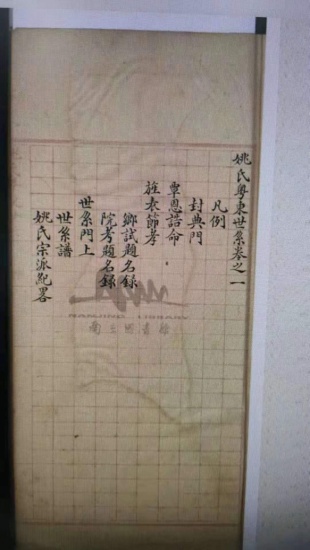 姚氏粤東世系卷之一
凡例
封典門
覃恩誥命
旌表節孝
鄉試題名錄
院考題名錄
世系門上
世系譜
姚氏宗派紀畧
NANJING LIBRARY
南京图书馆